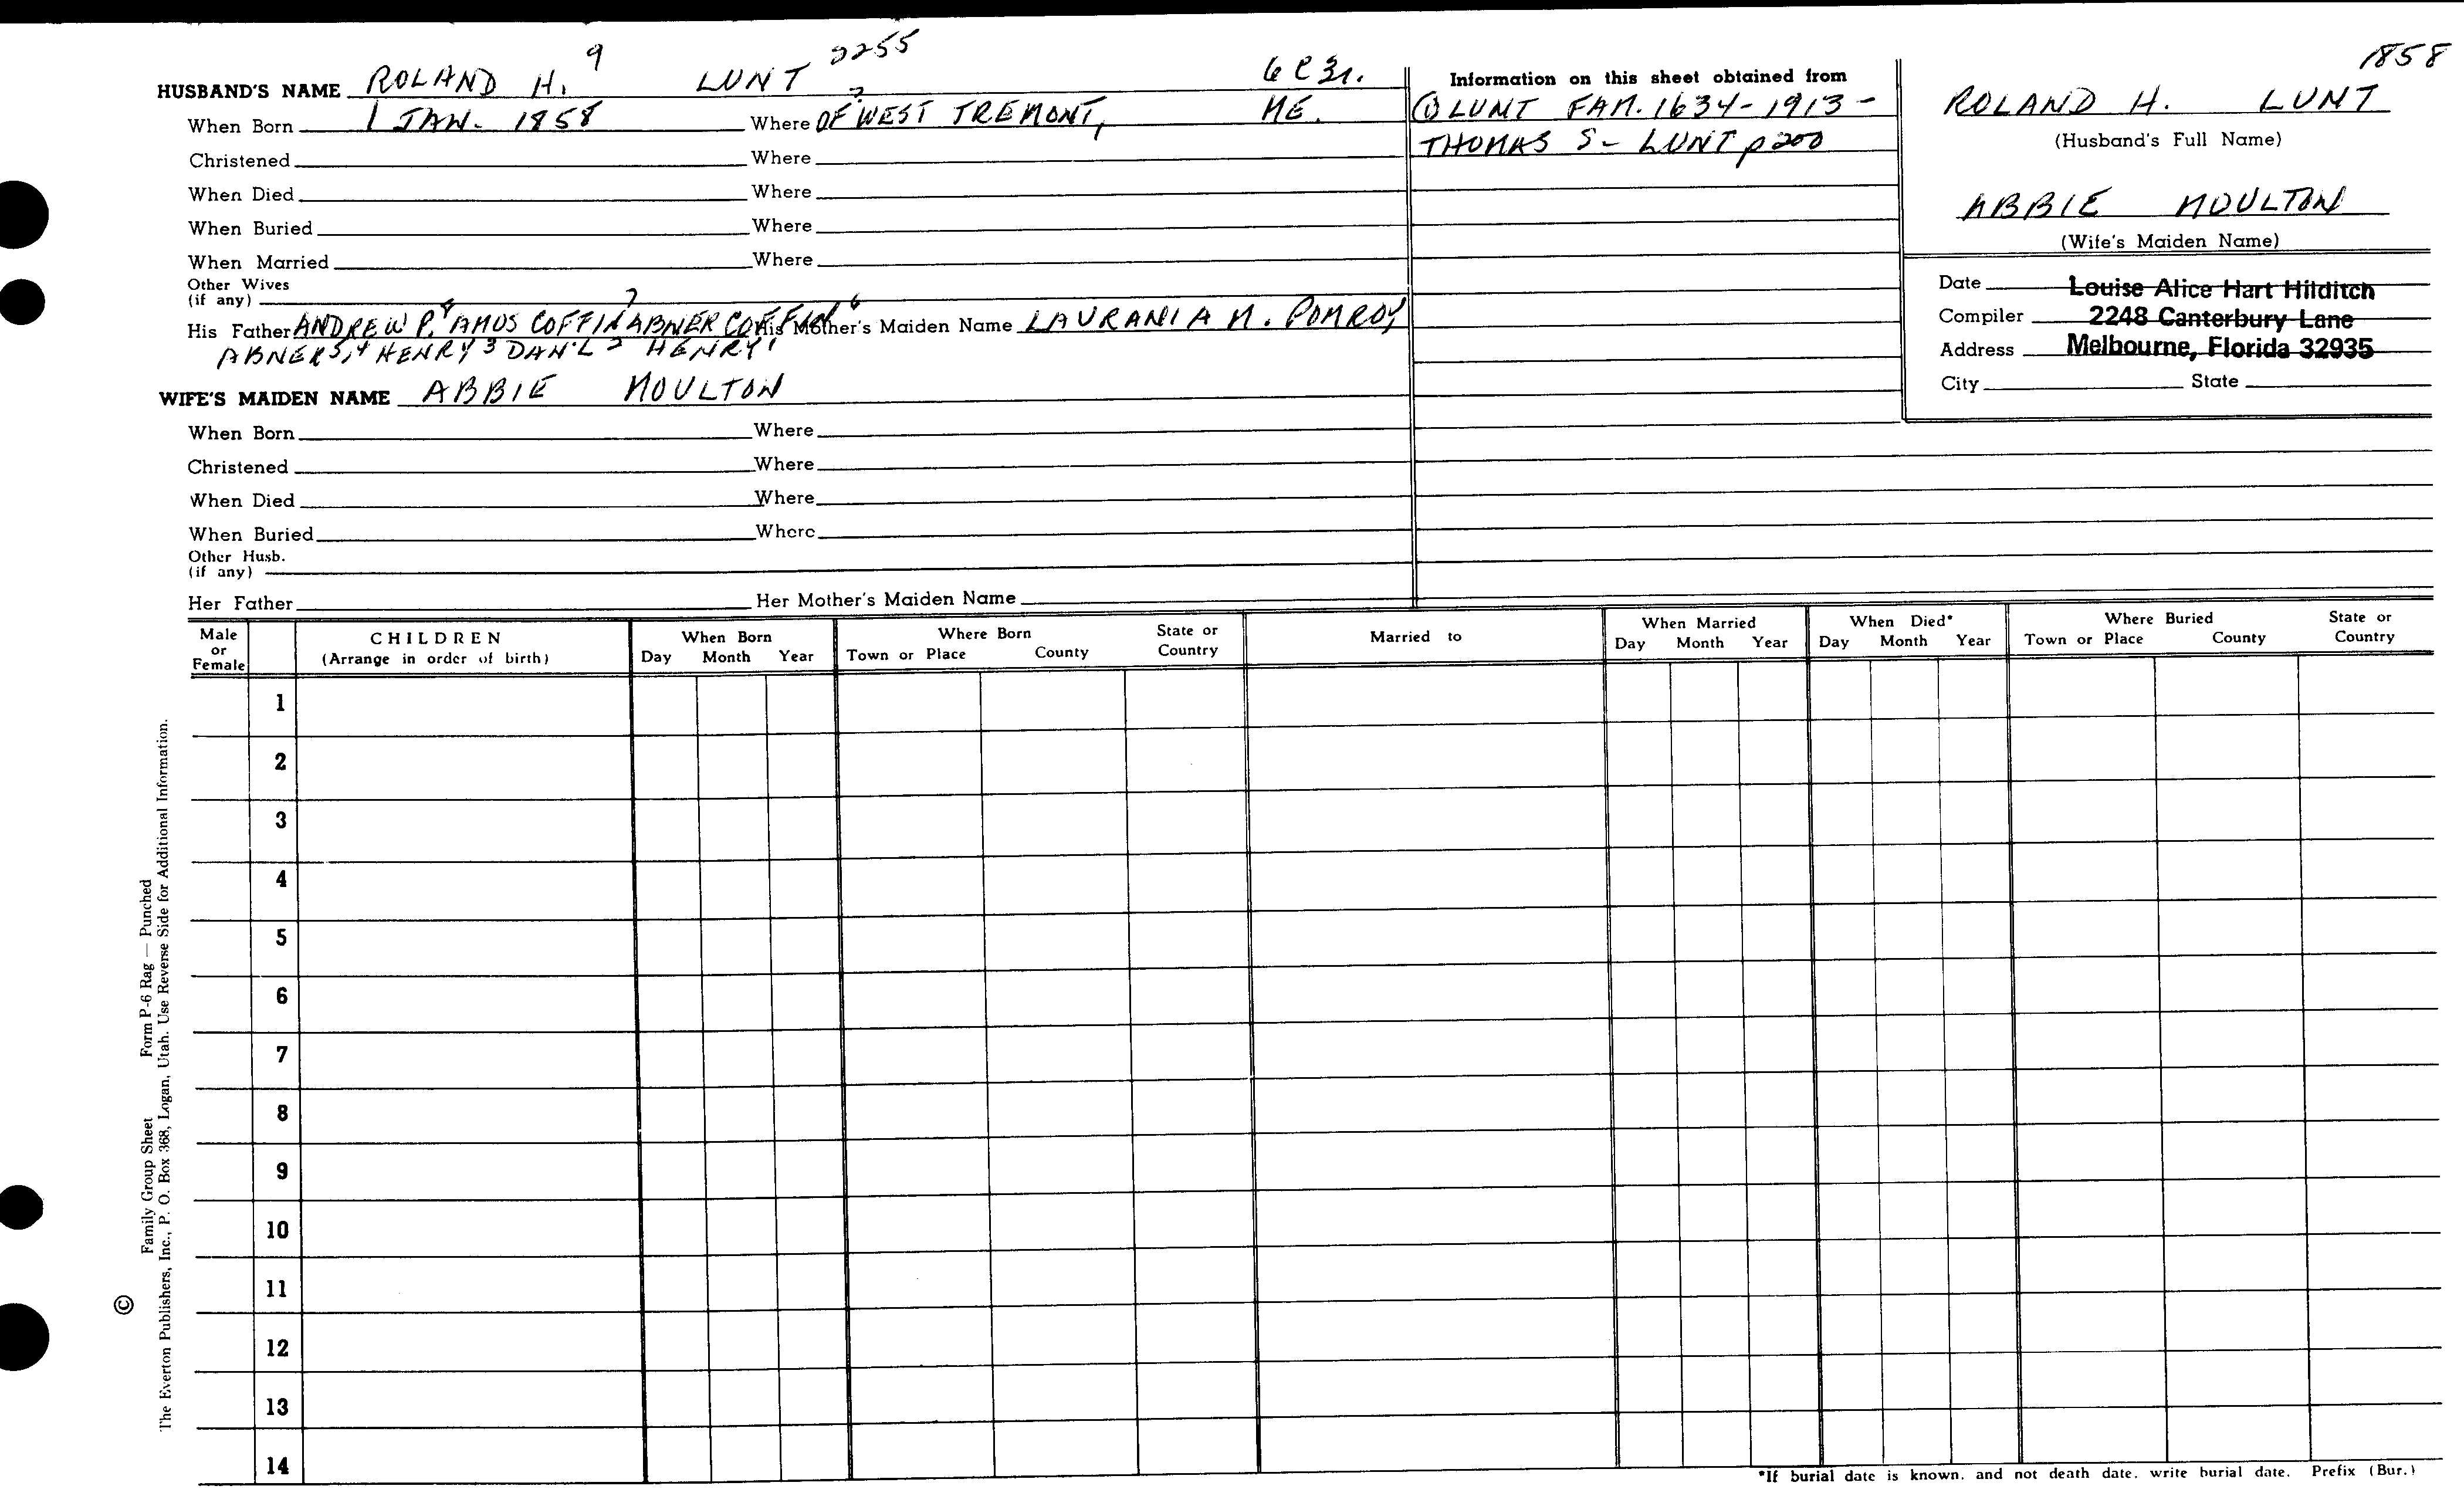 9 2255 1858
HUSBAND'S NAME ROLAND H. LUNT
When Born 1 JAN. 1858 Where ? OF WEST TREMONT, ME.
Christened Where
When Died Where
When Buried Where
When Married Where
Other Wives
(if any)
His Father ANDREW P.8 AMOS COFFIN7 ABNER COFFIN6 His Mother's Maiden Name LAURANIA M. POMROY
ABNER5,4 HENRY3 DAN'L2 HENRY1
WIFE'S MAIDEN NAME ABBIE MOULTON
When Born Where
Christened Where
When Died Where
When Buried Where
Other Husb.
(if any)
Her Father Her Mother's Maiden Name
Information on this sheet obtained from
① LUNT FAM. 1634-1913-
THOMAS S- LUNT p 200
ROLAND H. LUNT
(Husband's Full Name)
ABBIE MOULTON
(Wife's Maiden Name)
Date Louise Alice Hart Hilditch
Compiler 2248 Canterbury Lane
Address Melbourne, Florida 32935
City State
Male or Female
CHILDREN
(Arrange in order of birth)
When Born
Day Month Year
Where Born
Town or Place County State or Country
Married to
When Married
Day Month Year
When Died*
Day Month Year
Where Buried
Town or Place County State or Country
1
2
3
4
5
6
7
8
9
10
11
12
13
14
*If burial date is known, and not death date, write burial date. Prefix (Bur.)
© Family Group Sheet Form P-6 Rag — Punched
The Everton Publishers, Inc., P. O. Box 368, Logan, Utah. Use Reverse Side for Additional Information.